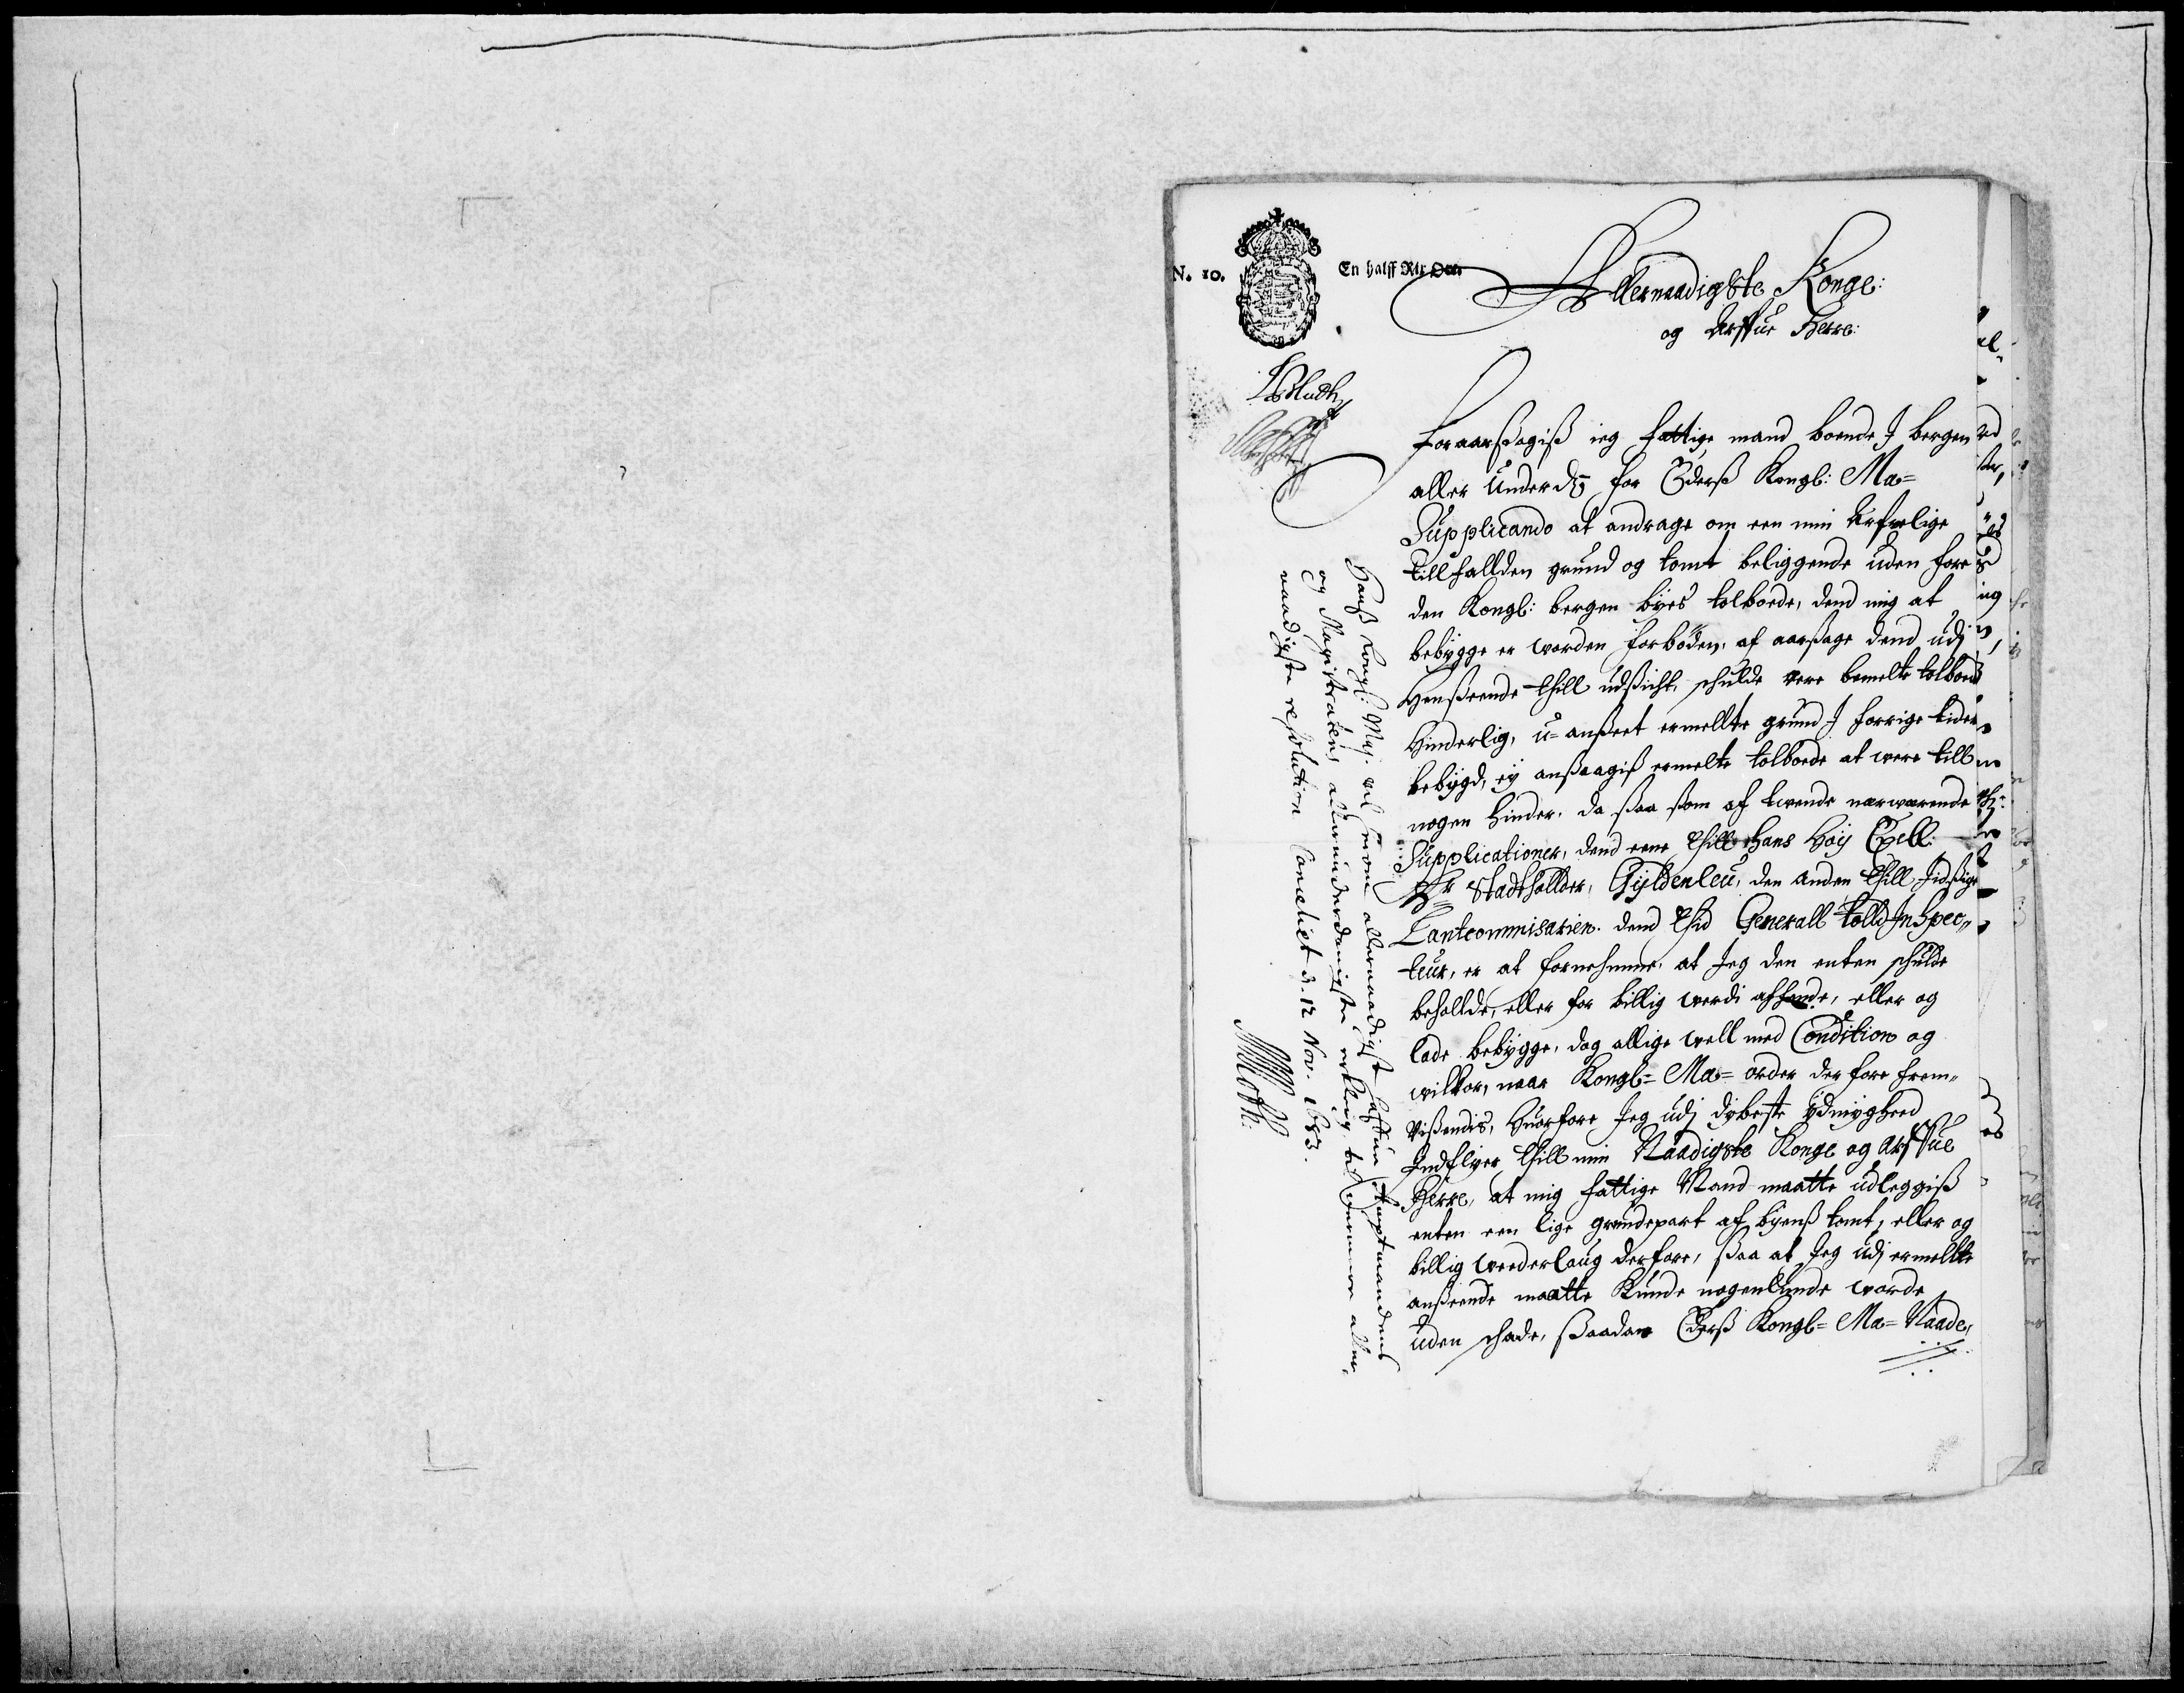 N. 10.
En halff Rix Dr.
Allernaadigste Konge:
og Arffue Herre:
Foraarsagiß ieg fattige mand boende J bergen
aller underd: for Eders Kongl: Ma=
Supplicando at andrage om een min Arfvelige
tillfallden grund og tomt beliggende uden fore
den Kongl: bergen byes tolboede, dend mig at
bebygge er worden forboden, af aarsage dend udj
Henseende thill udsicht, schulde vere bemelte tolboed
Hinderlig, u=anseet ermellte grund J forrige tider
bebygd, ey ansaagiß ermelte tolboede at were till
nogen hinder. da saa som af tvende nærwærende
Supplicationer, dend eene thill Hans Höy Exell:
Hr Stadthollder, Gyldenleu, den anden thill
Lantcommisarien. dend thid Generall tolld Inspec„
teur, er at fornehmme, at Jeg den enten schulde
behollde, eller for billig werdi afhende, eller og
lade bebygge, dog allige well med Condition og
wilkor, naar Kongl= Ma= order der fore frem„
Vißendis, Huorfore Jeg udj dybeste ydmyghed
Indflyer thill min Naadigste Konge og Arffue
Herre, at mig fattige Mand maatte udleggiß
enten een lige grundepart af byenß tomt, eller og
billig wederlaug derfore, saa at Jeg udj ermellte
anseende maatte kunde nogenlunde worde
uden schade, saadan Eders Kongl= Ma= Naade,
Hans Kongl: May: vil herom allernaadigst hafve Stiftamtmandens
og Magistratens allerunderdanigste erklering til
naadigste resolution Canceliet d. 12 Nov. 1683.
Moth: